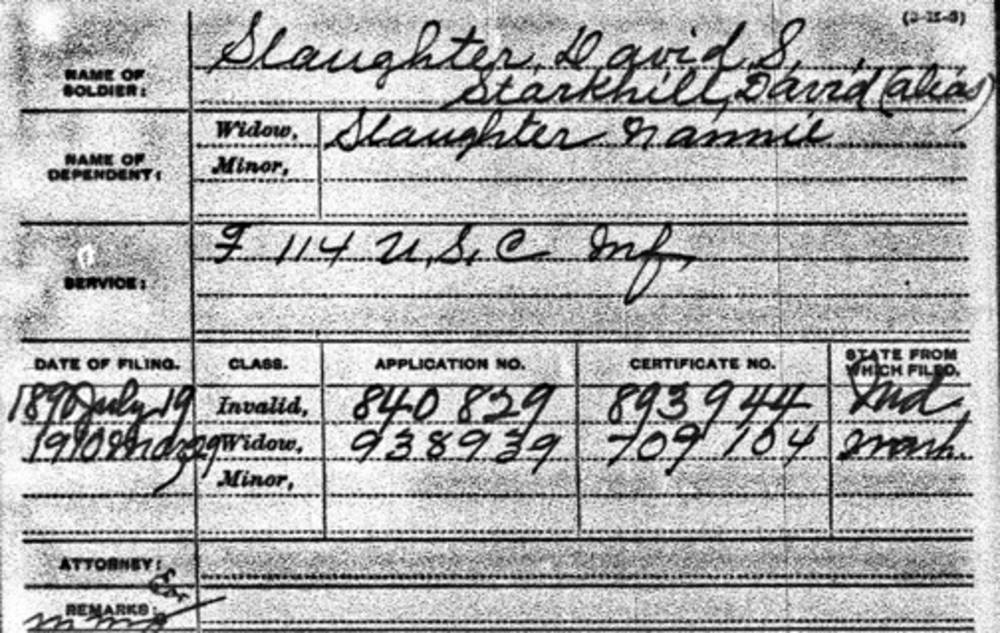 (3-II-3)
NAME OF SOLDIER: Slaughter, David S,
Starkhill, David (alias)
NAME OF DEPENDENT: Widow, Slaughter Nannie
Minor,
SERVICE: F 114 U.S.C Inf,
DATE OF FILING. CLASS. APPLICATION NO. CERTIFICATE NO. STATE FROM WHICH FILED.
1890 July 19 Invalid, 840 829 893 944 Ind
1910 Mar 29 Widow, 938939 709 104 Wash.
Minor,
ATTORNEY:
REMARKS: